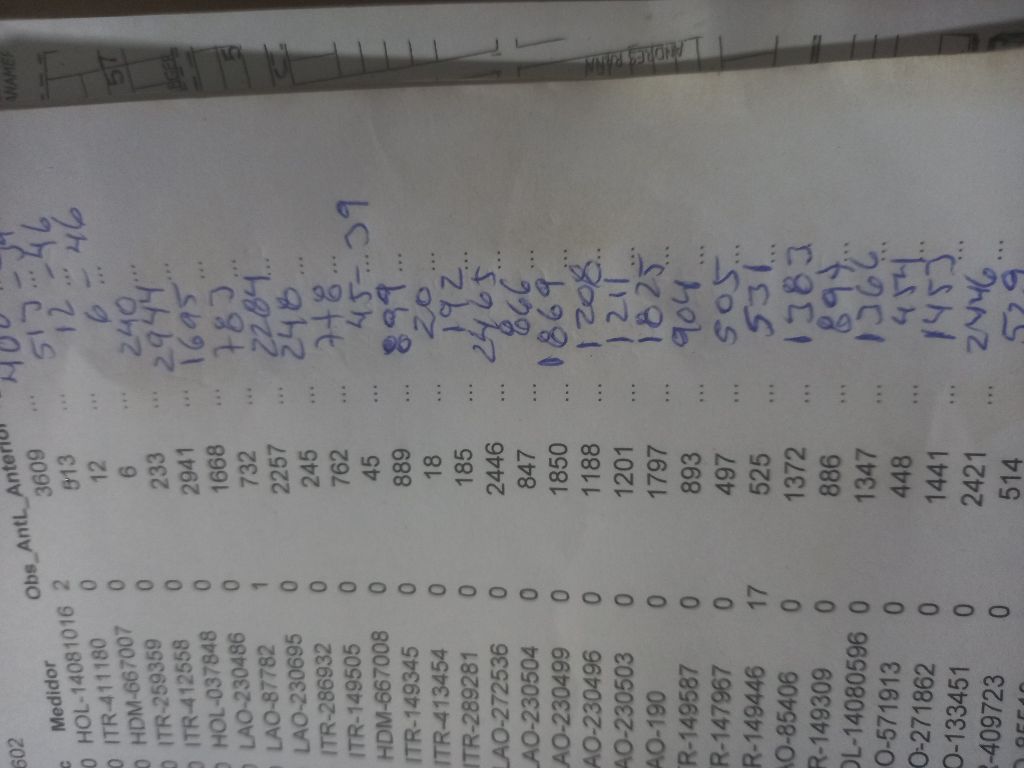 602
Medidor Obs_Antl_Anterior
HOL-14081016 2 3609 ...
ITR-411180 0 513 ... 513 ...
HDM-667007 0 12 ... 12 - 46
ITR-259359 0 6 ... 6 - 46
ITR-412558 0 233 ... 240 ...
HOL-037848 0 2941 ... 2944 ...
LAO-230486 0 1668 ... 1695 ...
LAO-87782 1 732 ... 783 ...
LAO-230695 0 2257 ... 2284 ...
ITR-286932 0 245 ... 248 ...
ITR-149505 0 762 ... 778 ...
HDM-667008 0 45 ... 45 - 39
ITR-149345 0 889 ... 899 ...
ITR-413454 0 18 ... 20 ...
ITR-289281 0 185 ... 192 ...
LAO-272536 0 2446 ... 2465 ...
LAO-230504 0 847 ... 866 ...
AO-230499 0 1850 ... 1869 ...
AO-230496 0 1188 ... 1208 ...
AO-230503 0 1201 ... 1211 ...
AO-190 0 1797 ... 1825 ...
R-149587 0 893 ... 904 ...
R-147967 0 497 ... 505 ...
R-149446 17 525 ... 531 ...
AO-85406 0 1372 ... 1383 ...
R-149309 0 886 ... 894 ...
OL-140805​96 0 1347 ... 1366 ...
O-571913 0 448 ... 454 ...
O-271862 0 1441 ... 1453 ...
O-133451 0 2421 ... 2446 ...
-409723 0 514 ... 529 ...